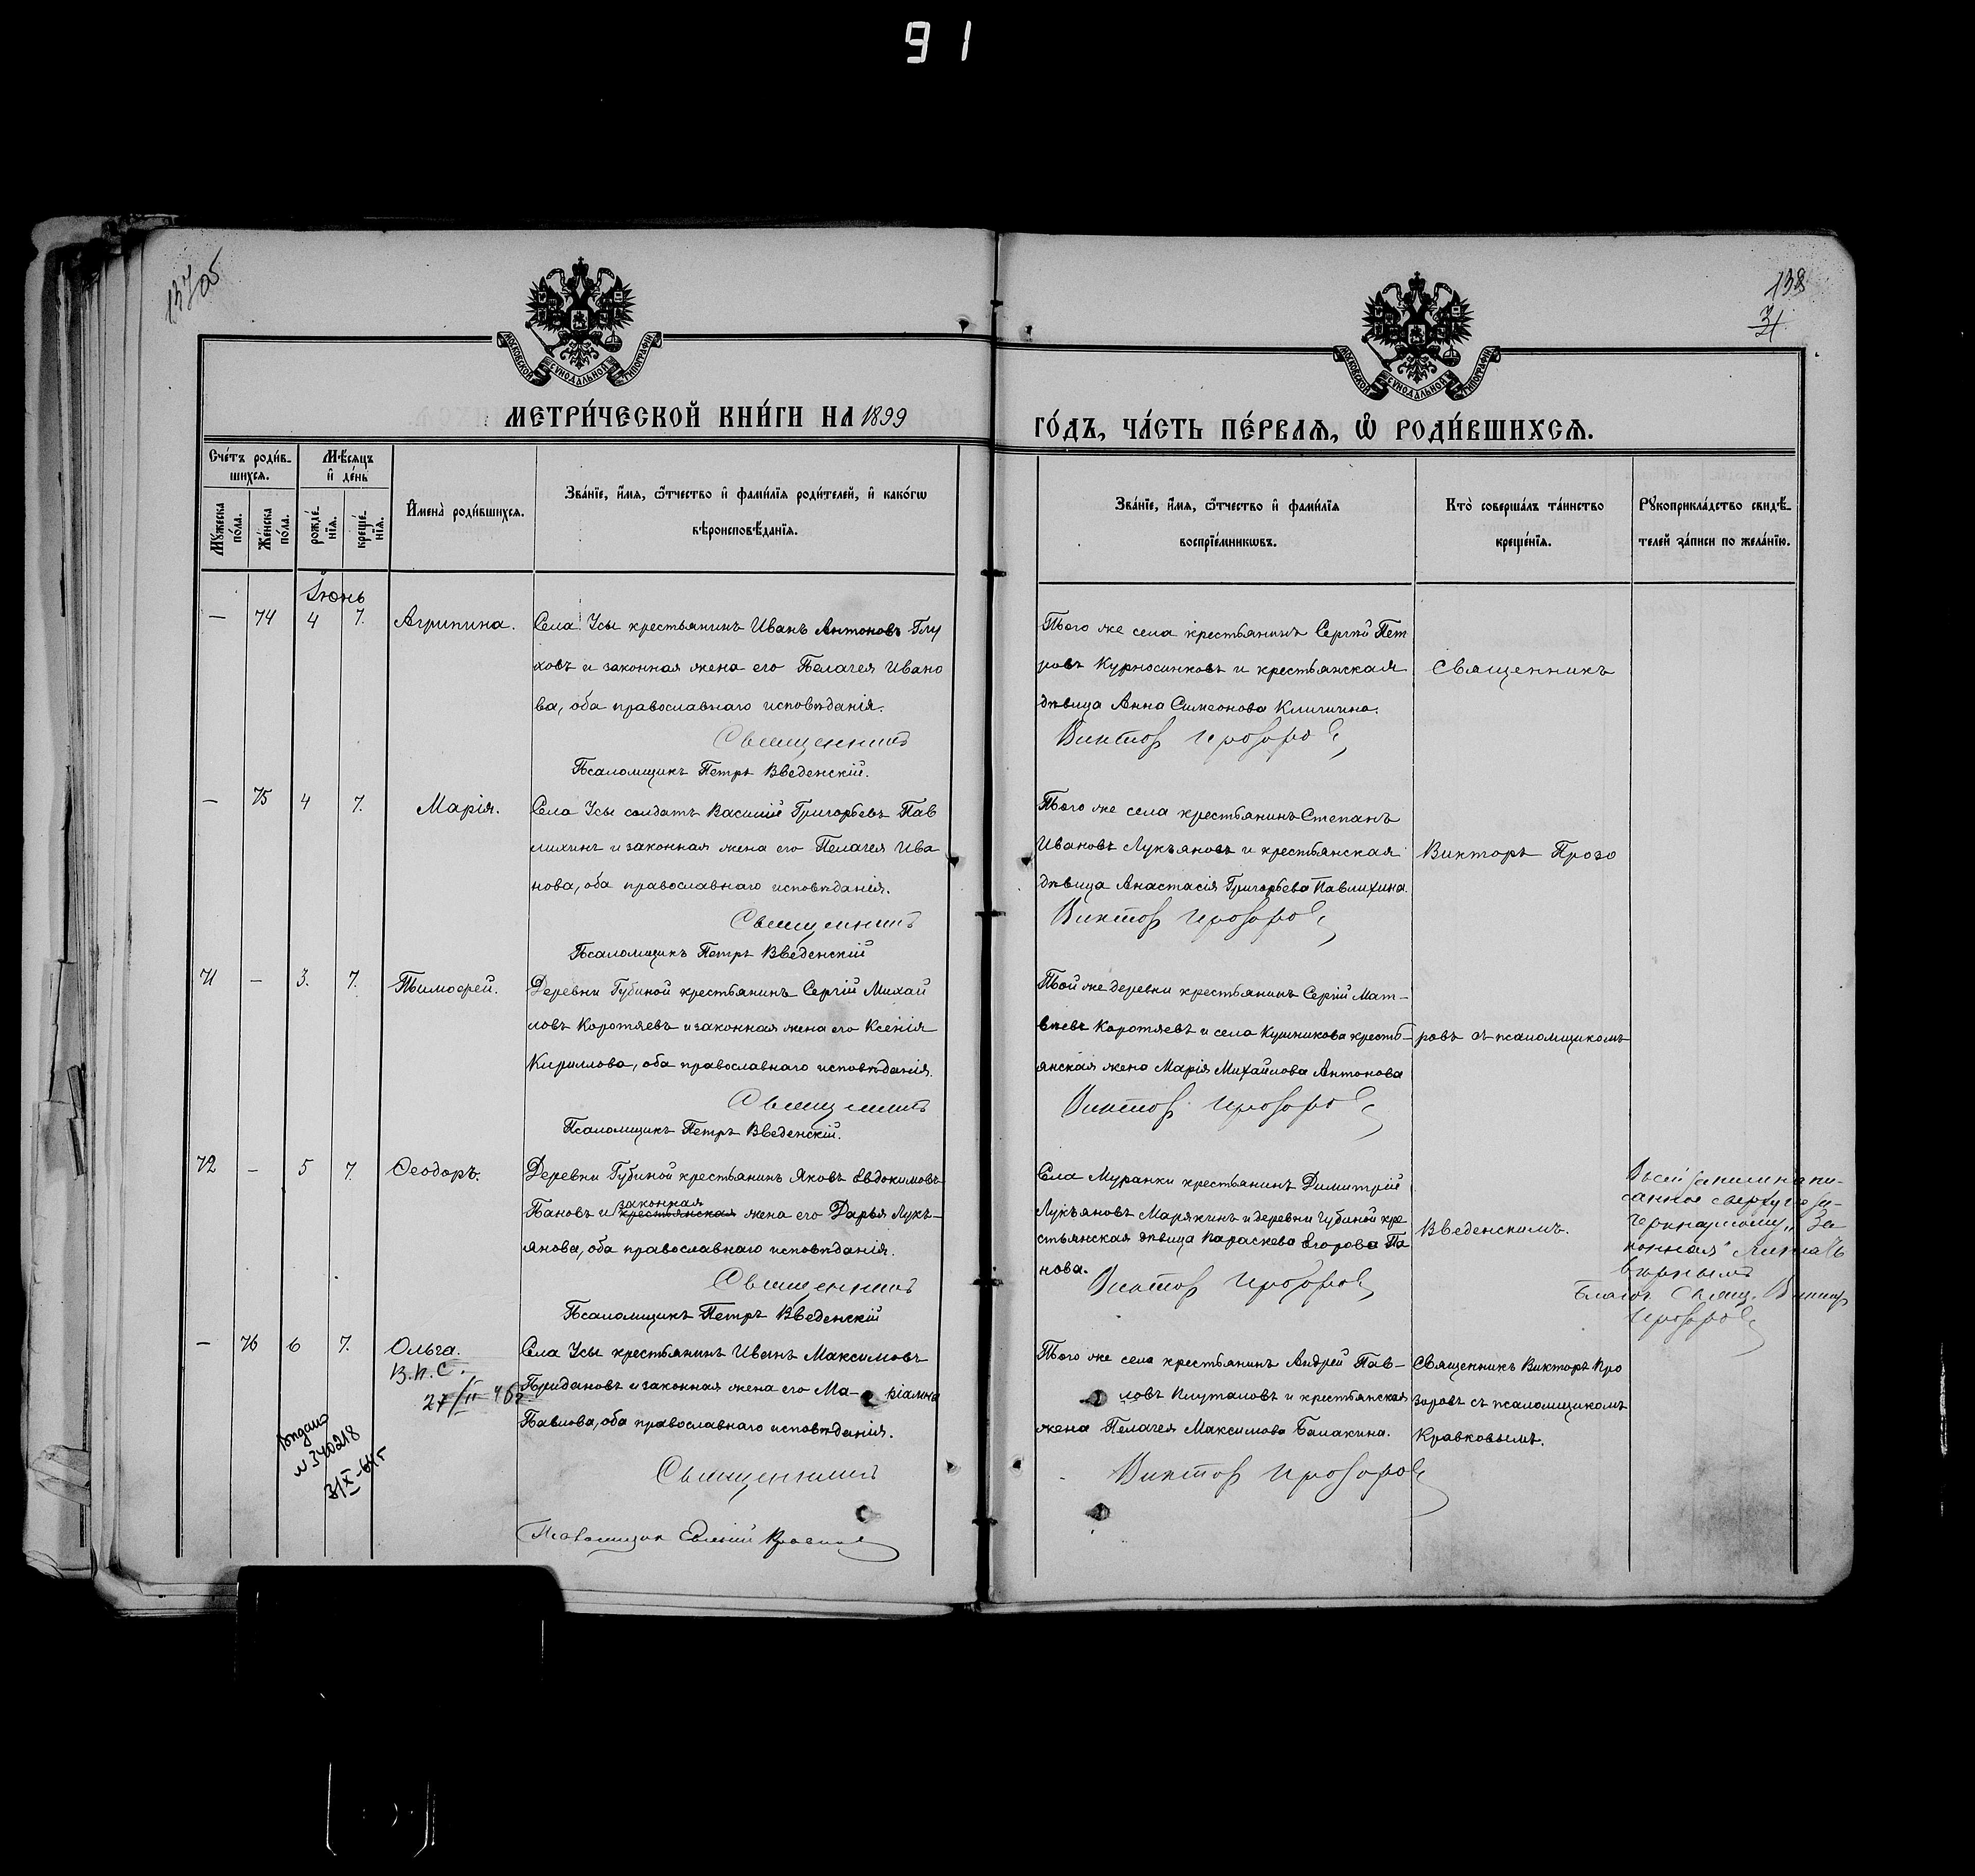 91
137об
138
31
МОСКОВСКОЙ СѴНОДАЛЬНОЙ ТИПОГРАФІИ
МОСКОВСКОЙ СѴНОДАЛЬНОЙ ТИПОГРАФІИ
МЕТРИ́ЧЕСКОЙ КНИ́ГИ НА 1899
ГО́ДЪ, ЧА́СТЬ ПЕ́РВАѦ, Ѡ҆ РОДИ́ВШИХСѦ.
Сче́тъ роди́в-
шихсѧ.
Мѣ́сѧцъ
и҆ де́нь
Мꙋ́жеска
по́ла.
Же́нска
по́ла.
рожде́-
нїѧ.
креще́-
нїѧ.
И҆мена̀ роди́вшихсѧ.
Зва́нїе, и҆́мѧ, ѻ҆́тчество и҆ фами́лїѧ роди́телей, и҆ како́гѡ
вѣроисповѣ́данїѧ.
Зва́нїе, и҆́мѧ, ѻ҆́тчество и҆ фами́лїѧ
воспрїе́мникѡвъ.
Кто̀ соверша́лъ та́инство
креще́нїѧ.
Рꙋкоприкла́дство свидѣ́-
телей за́писи по жела́нїю.
Іюнь
— 74 4 7. Агрипина.
Села Усы крестьянинъ Иванъ Антоновъ Глу
ховъ и законная жена его Пелагея Ивано
ва, оба православнаго исповѣданія.
Священникъ
Псаломщикъ Петръ Введенскій.
Того же села крестьянинъ Сергѣй Пет
ровъ Курносинковъ и крестьянская
дѣвица Анна Симеонова Кличина.
Викторъ Прозоровъ
Священникъ
— 75 4 7. Марія.
Села Усы солдатъ Василій Григорьевъ Пав
лихинъ и законная жена его Пелагея Ива
нова, оба православнаго исповѣданія.
Священникъ
Псаломщикъ Петръ Введенскій
Того же села крестьянинъ Степанъ
Ивановъ Лукъяновъ и крестьянская
дѣвица Анастасія Григорьева Павлихина.
Викторъ Прозоровъ
Викторъ Прозо
71 — 3. 7. Тимоѳей.
Деревни Губиной крестьянинъ Сергій Михай
ловъ Коротяевъ и законная жена его Ксенія
Кириллова, оба православнаго исповѣданія.
Священникъ
Псаломщикъ Петръ Введенскій.
Той же деревни крестьянинъ Сергій Мат-
вѣевъ Коротяевъ и села Кушникова кресть-
янская жена Марія Михайлова Антонова
Викторъ Прозоровъ
ровъ съ псаломщикомъ
72 — 5 7. Ѳеодоръ.
Деревни Губиной крестьянинъ Яковъ Евдокимовъ
законная
Пановъ и крестьянская жена его Дарья Лукъ-
янова, оба православнаго исповѣданія.
Священникъ
Псаломщикъ Петръ Введенскій
Села Муранки крестьянинъ Димитрій
Лукъяновъ Марякинъ и деревни Губиной кре
стьянская дѣвица Параскева Егорова Па
нова.
Викторъ Прозоровъ
Введенскимъ.
Въ сей записи напи-
санное сверху
„За
конная“ читать
вѣрнымъ
Благоч. Свящ. Викторъ
Прозоровъ
— 76 6 7. Ольга.
В.п.С.
27/II-46г
Выдано
№ 340218
31/X-64г
Села Усы крестьянинъ Иванъ Максимовъ
Придановъ и законная жена его Ма- ріамна
Павлова, оба православнаго исповѣданія.
Священникъ
Псаломщикъ Евгеній Кравковъ
Того же села крестьянинъ Андрей Пав-
ловъ Плуталовъ и крестьянская
жена Пелагея Максимова Балакина.
Викторъ Прозоровъ
Священникъ Викторъ Про
зоровъ съ псаломщикомъ
Кравковымъ.